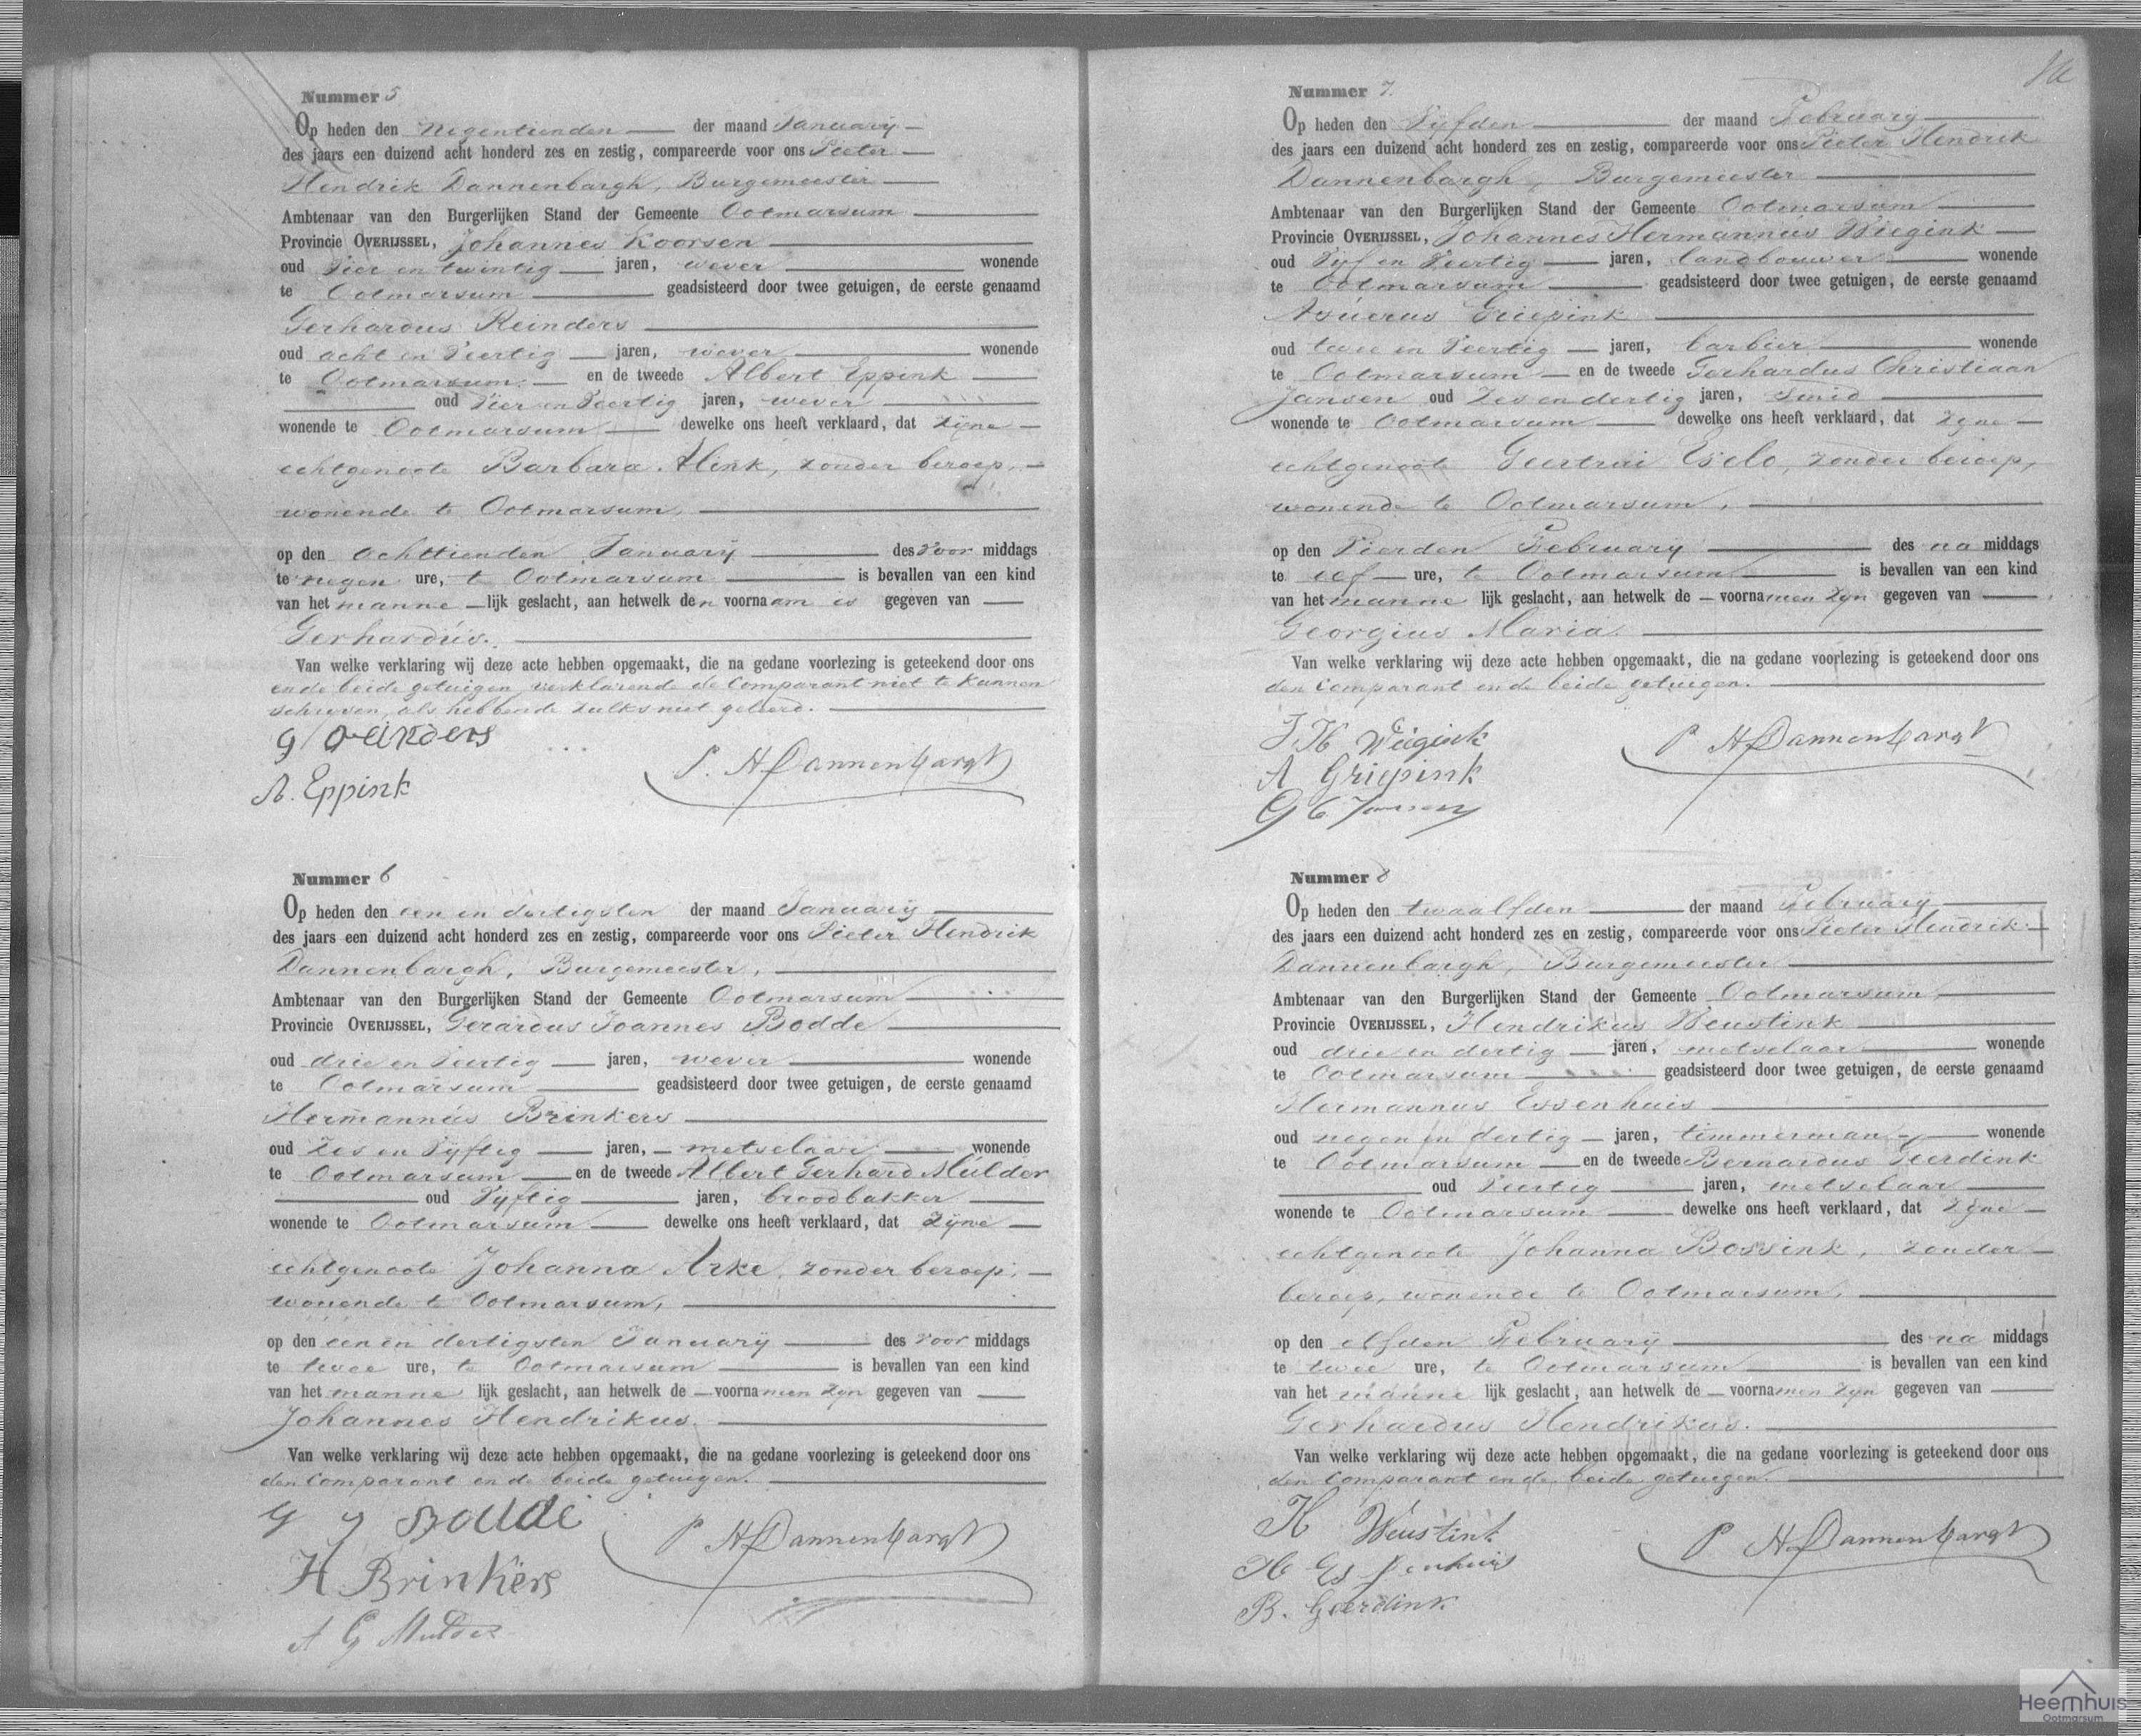 Nummer 5
Op heden den negentienden der maand January
des jaars een duizend acht honderd zes en zestig, compareerde voor ons Pieter
Hendrik Dannenbargh, Burgemeester
Ambtenaar van den Burgerlijken Stand der Gemeente Ootmarsum
Provincie OVERIJSSEL, Johannes Koorsen
oud Vier en twintig jaren, wever wonende
te Ootmarsum geadsisteerd door twee getuigen, de eerste genaamd
Gerhardus Reinders
oud acht en Veertig jaren, wever wonende
te Ootmarsum en de tweede Albert Eppink
oud Vier en Veertig jaren, wever
wonende te Ootmarsum dewelke ons heeft verklaard, dat zyne
echtgenoote Barbara Alink, zonder beroep,
wonende te Ootmarsum,
op den achttienden January des voor middags
te negen ure, te Ootmarsum is bevallen van een kind
van het manne lijk geslacht, aan hetwelk den voornaam is gegeven van
Gerhardus.
Van welke verklaring wij deze acte hebben opgemaakt, die na gedane voorlezing is geteekend door ons
en de beide getuigen, verklarende de Comparant niet te kunnen
schryven, als hebbende zulks niet geleerd.
G reinders
A. Eppink
P. H Dannenbargh
Nummer 6
Op heden den een en dertigsten der maand January
des jaars een duizend acht honderd zes en zestig, compareerde voor ons Pieter Hendrik
Dannenbargh, Burgemeester,
Ambtenaar van den Burgerlijken Stand der Gemeente Ootmarsum
Provincie OVERIJSSEL, Gerardus Joannes Bodde
oud drie en Veertig jaren, wever wonende
te Ootmarsum geadsisteerd door twee getuigen, de eerste genaamd
Hermannus Brinkers
oud Zes en Vyftig jaren, metselaar wonende
te Ootmarsum en de tweede Albert Gerhard Mulder
oud Vyftig jaren, broodbakker
wonende te Ootmarsum dewelke ons heeft verklaard, dat zyne
echtgenoote Johanna Arke, zonder beroep,
wonende te Ootmarsum,
op den een en dertigsten January des voor middags
te twee ure, te Ootmarsum is bevallen van een kind
van het manne lijk geslacht, aan hetwelk de voornamen zyn gegeven van
Johannes Hendrikus.
Van welke verklaring wij deze acte hebben opgemaakt, die na gedane voorlezing is geteekend door ons
den Comparant en de beide getuigen.
G J Bodde
H Brinkers
A G Mulder
P H Dannenbargh
Nummer 7.
Op heden den Vyfden der maand February
des jaars een duizend acht honderd zes en zestig, compareerde voor ons Pieter Hendrik
Dannenbargh, Burgemeester
Ambtenaar van den Burgerlijken Stand der Gemeente Ootmarsum
Provincie OVERIJSSEL, Johannes Hermannus Wiegink
oud Vyf en Veertig jaren, landbouwer wonende
te Ootmarsum geadsisteerd door twee getuigen, de eerste genaamd
Asuerus Griepink
oud twee en Veertig jaren, barbier wonende
te Ootmarsum en de tweede Gerhardus Christiaan
Jansen oud Zes en dertig jaren, smid
wonende te Ootmarsum dewelke ons heeft verklaard, dat zyne
echtgenoote Geertrui Eselo, zonder beroep,
wonende te Ootmarsum,
op den Vierden February des na middags
te elf ure, te Ootmarsum is bevallen van een kind
van het manne lijk geslacht, aan hetwelk de voornamen zyn gegeven van
Georgius Maria.
Van welke verklaring wij deze acte hebben opgemaakt, die na gedane voorlezing is geteekend door ons
den Comparant en de beide getuigen.
J. H Wiegink
A Griepink
G C Jansen
P H Dannenbargh
Nummer 8
Op heden den twaalfden der maand February
des jaars een duizend acht honderd zes en zestig, compareerde voor ons Pieter Hendrik
Dannenbargh, Burgemeester
Ambtenaar van den Burgerlijken Stand der Gemeente Ootmarsum,
Provincie OVERIJSSEL, Hendrikus Weustink
oud drie en dertig jaren, metselaar wonende
te Ootmarsum geadsisteerd door twee getuigen, de eerste genaamd
Hermannus Essenhuis
oud negen en dertig jaren, timmerman wonende
te Ootmarsum en de tweede Bernardus Geerdink
oud Veertig jaren, metselaar
wonende te Ootmarsum dewelke ons heeft verklaard, dat zyne
echtgenoote Johanna Bossink, zonder
beroep, wonende te Ootmarsum,
op den elfden February des na middags
te twee ure, te Ootmarsum is bevallen van een kind
van het manne lijk geslacht, aan hetwelk de voornamen zyn gegeven van
Gerhardus Hendrikus.
Van welke verklaring wij deze acte hebben opgemaakt, die na gedane voorlezing is geteekend door ons
den Comparant en de beide getuigen.
H Weustink
H Essenhuis
B. Geerdink
P H Dannenbargh
Heemhuis
Ootmarsum